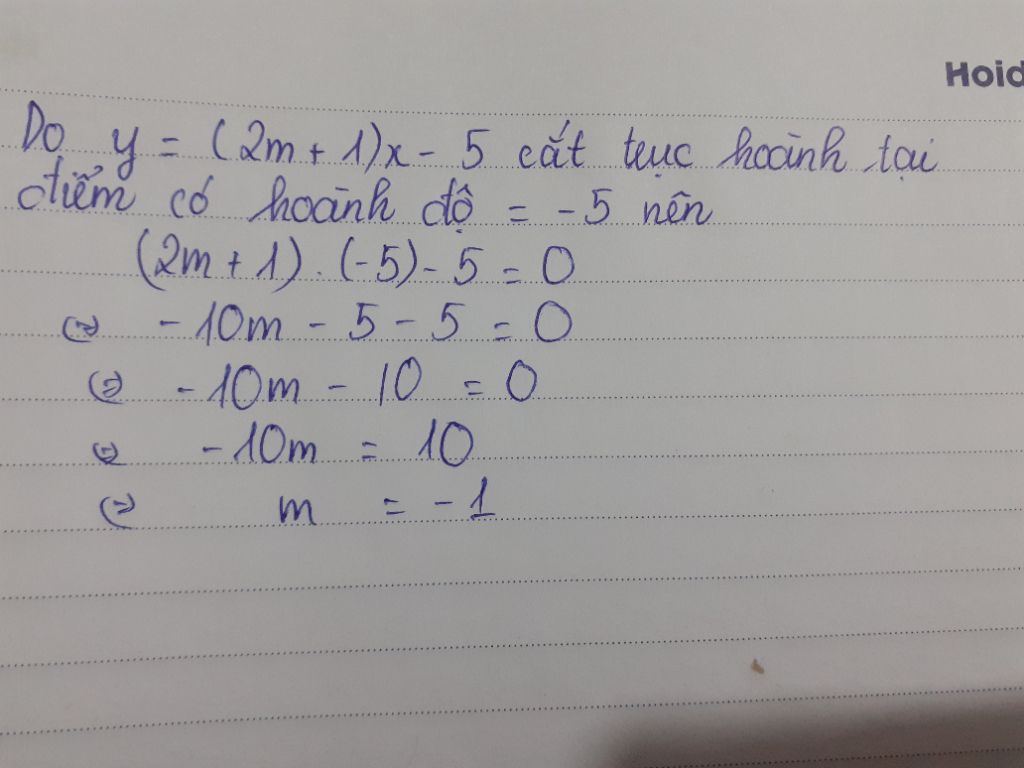 Hoid
Do y = (2m + 1)x - 5 cắt trục hoành tại
điểm có hoành độ = -5 nên
(2m + 1) . (-5) - 5 = 0
(=) - 10m - 5 - 5 = 0
(=) - 10m - 10 = 0
(=) - 10m = 10
(=) m = -1